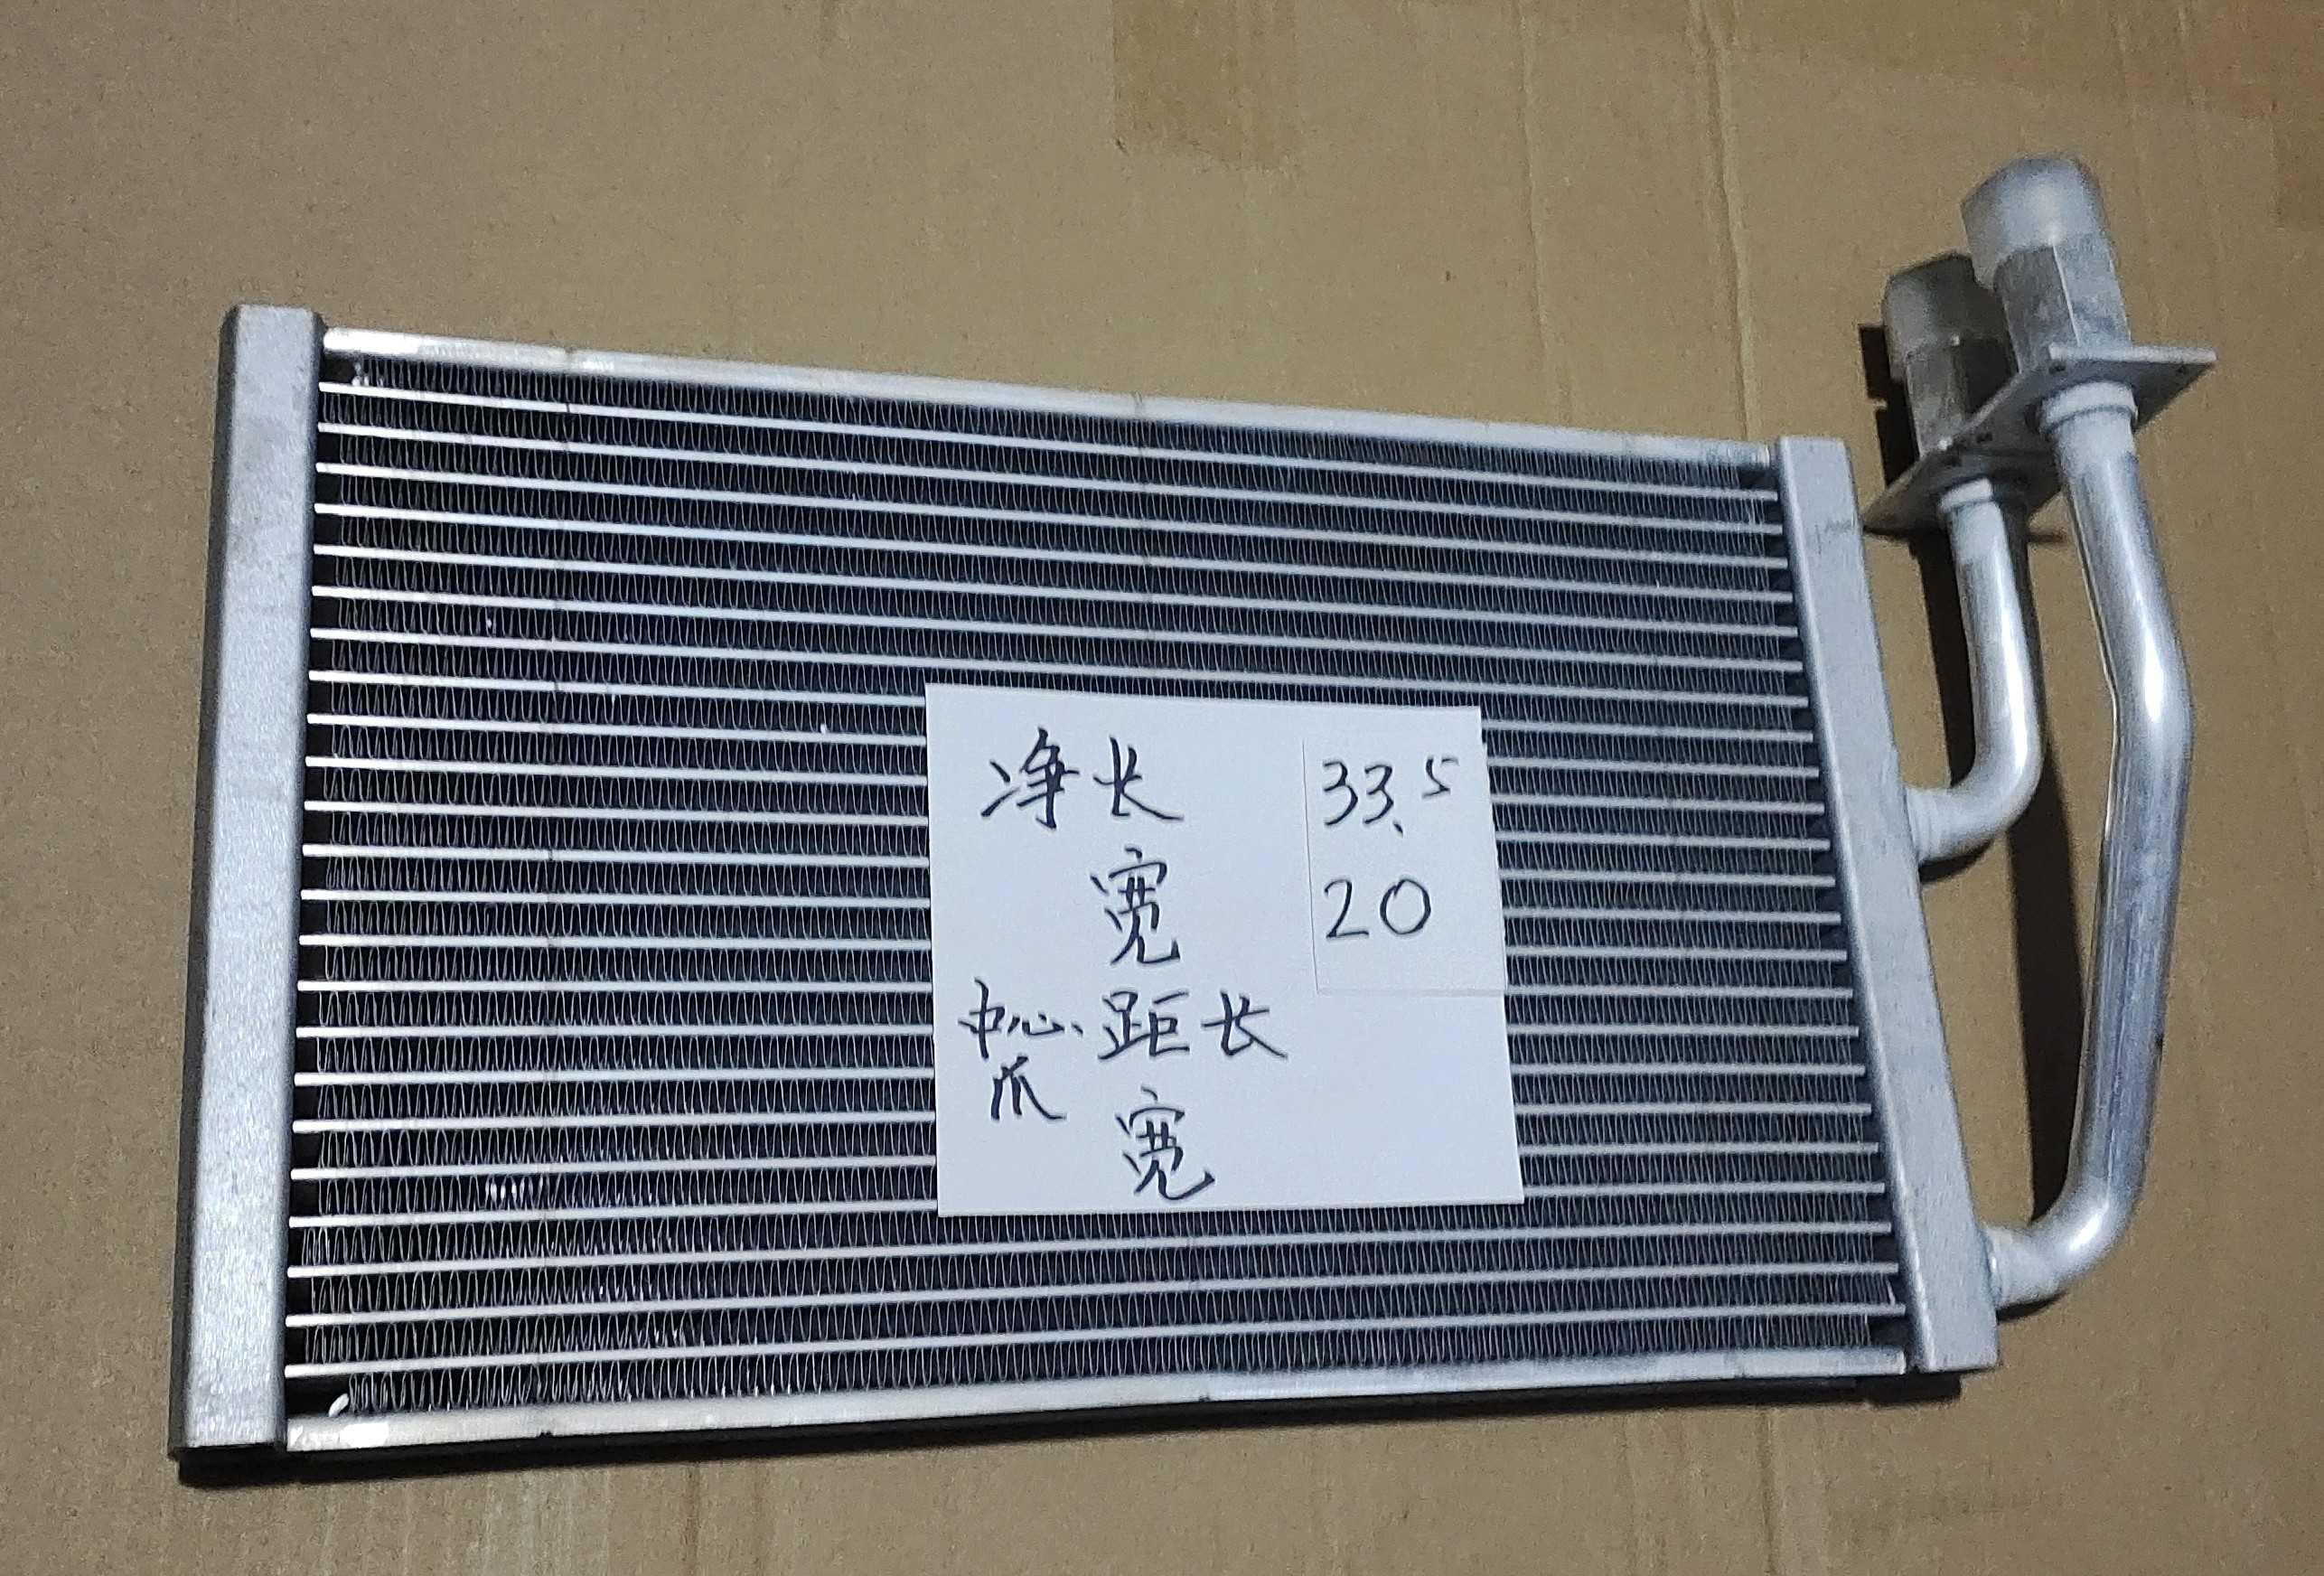 净长 33.5
宽 20
中心距长
爪
宽